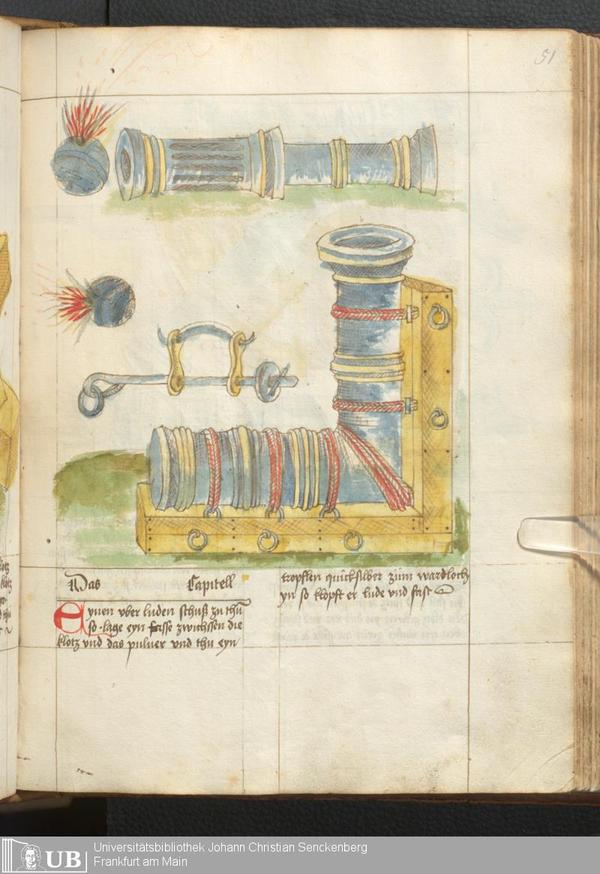 51
Das Capitell
Eynen vber luden schuß zu thu
so lage eyn zwichssen die
klotz vnd das puluer vnd thu eyn
tropffen quicksilber zum wardloch
yn so klopft er lude vnd fast
UB
Universitätsbibliothek Johann Christian Senckenberg
Frankfurt am Main